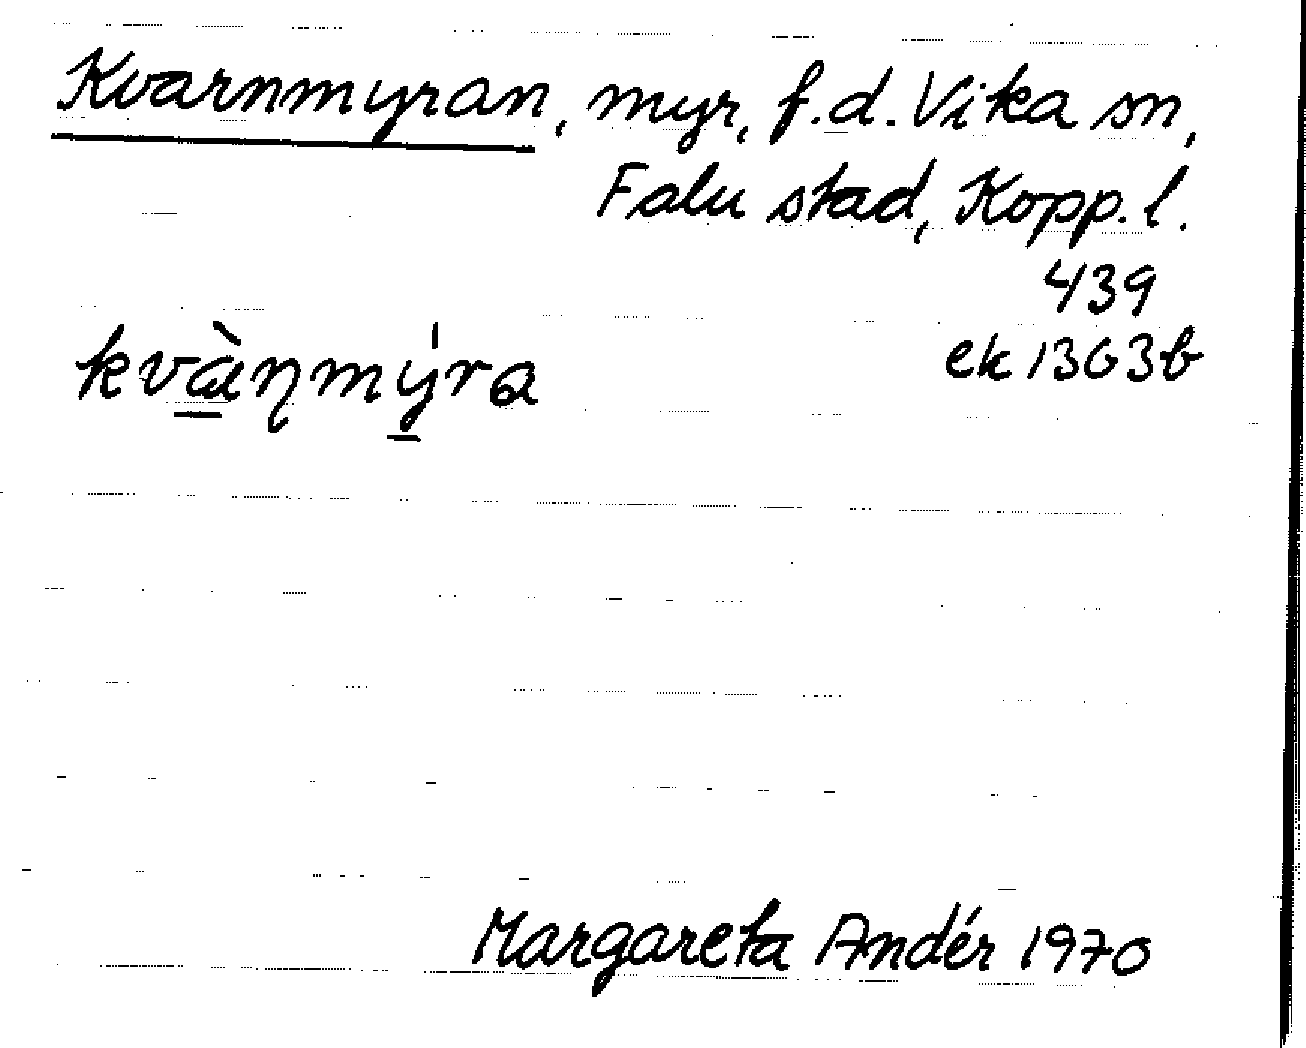 Kvarnmyran, myr, f.d. Vika sn,
Falu stad, Kopp. l.
439
kvàɳmýra
ek 13G3b
Margareta Andér 1970